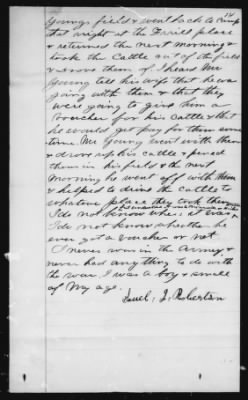 14
Youngs field & went back to camp
that night at the Terrill place
& returned the next morning &
took the cattle out of the field
& drove them off I heard Mr
Young tell his wife that he was
going with them & that they
were going to give him a
voucher for his cattle & that
he would get pay for them some
time. Mr Young went with them
& drove up his cattle & penned
them in his field & the next
morning he went off with them
& helped to drive the cattle to
whatever place they took them
I do not know where it was &
I do not know whether he
ever got a voucher or not.
I never was in the Army &
never had any thing to do with
the war. I was a boy & small
of my age.
Saml. J. Robertson